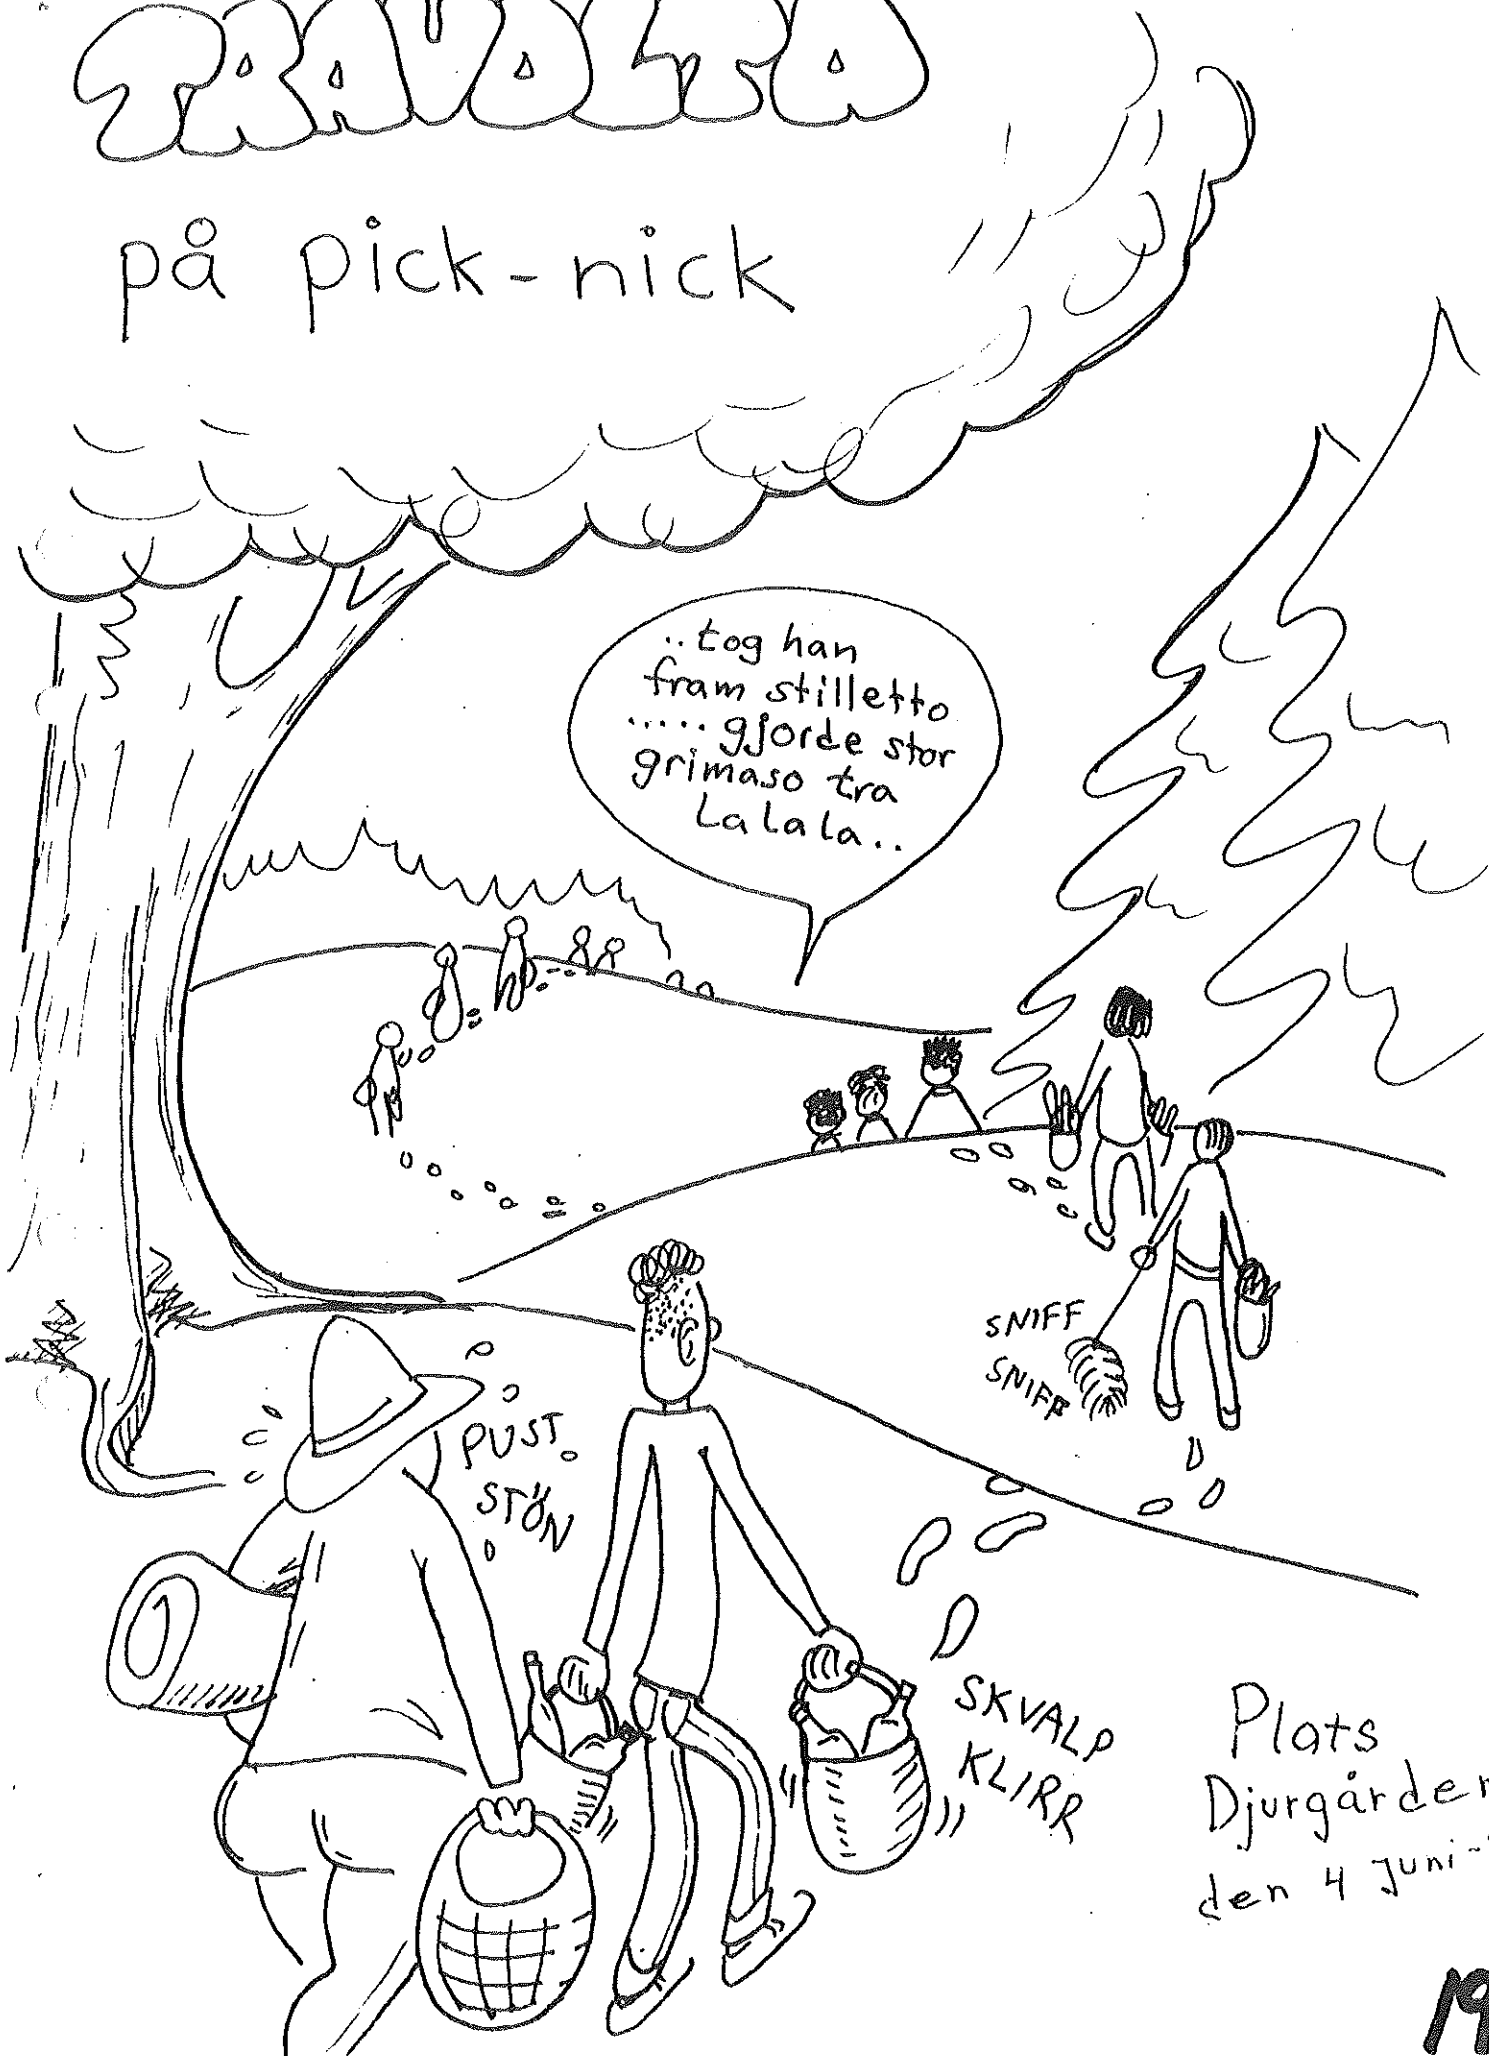 TRAVOLTA
på pick-nick
..tog han
fram stilletto
.....gjorde stor
grimaso tra
La la la..
SNIFF
SNIFF
PUST
STÖN
SKVALP
KLIRR
Plats
Djurgården
den 4 juni-
19